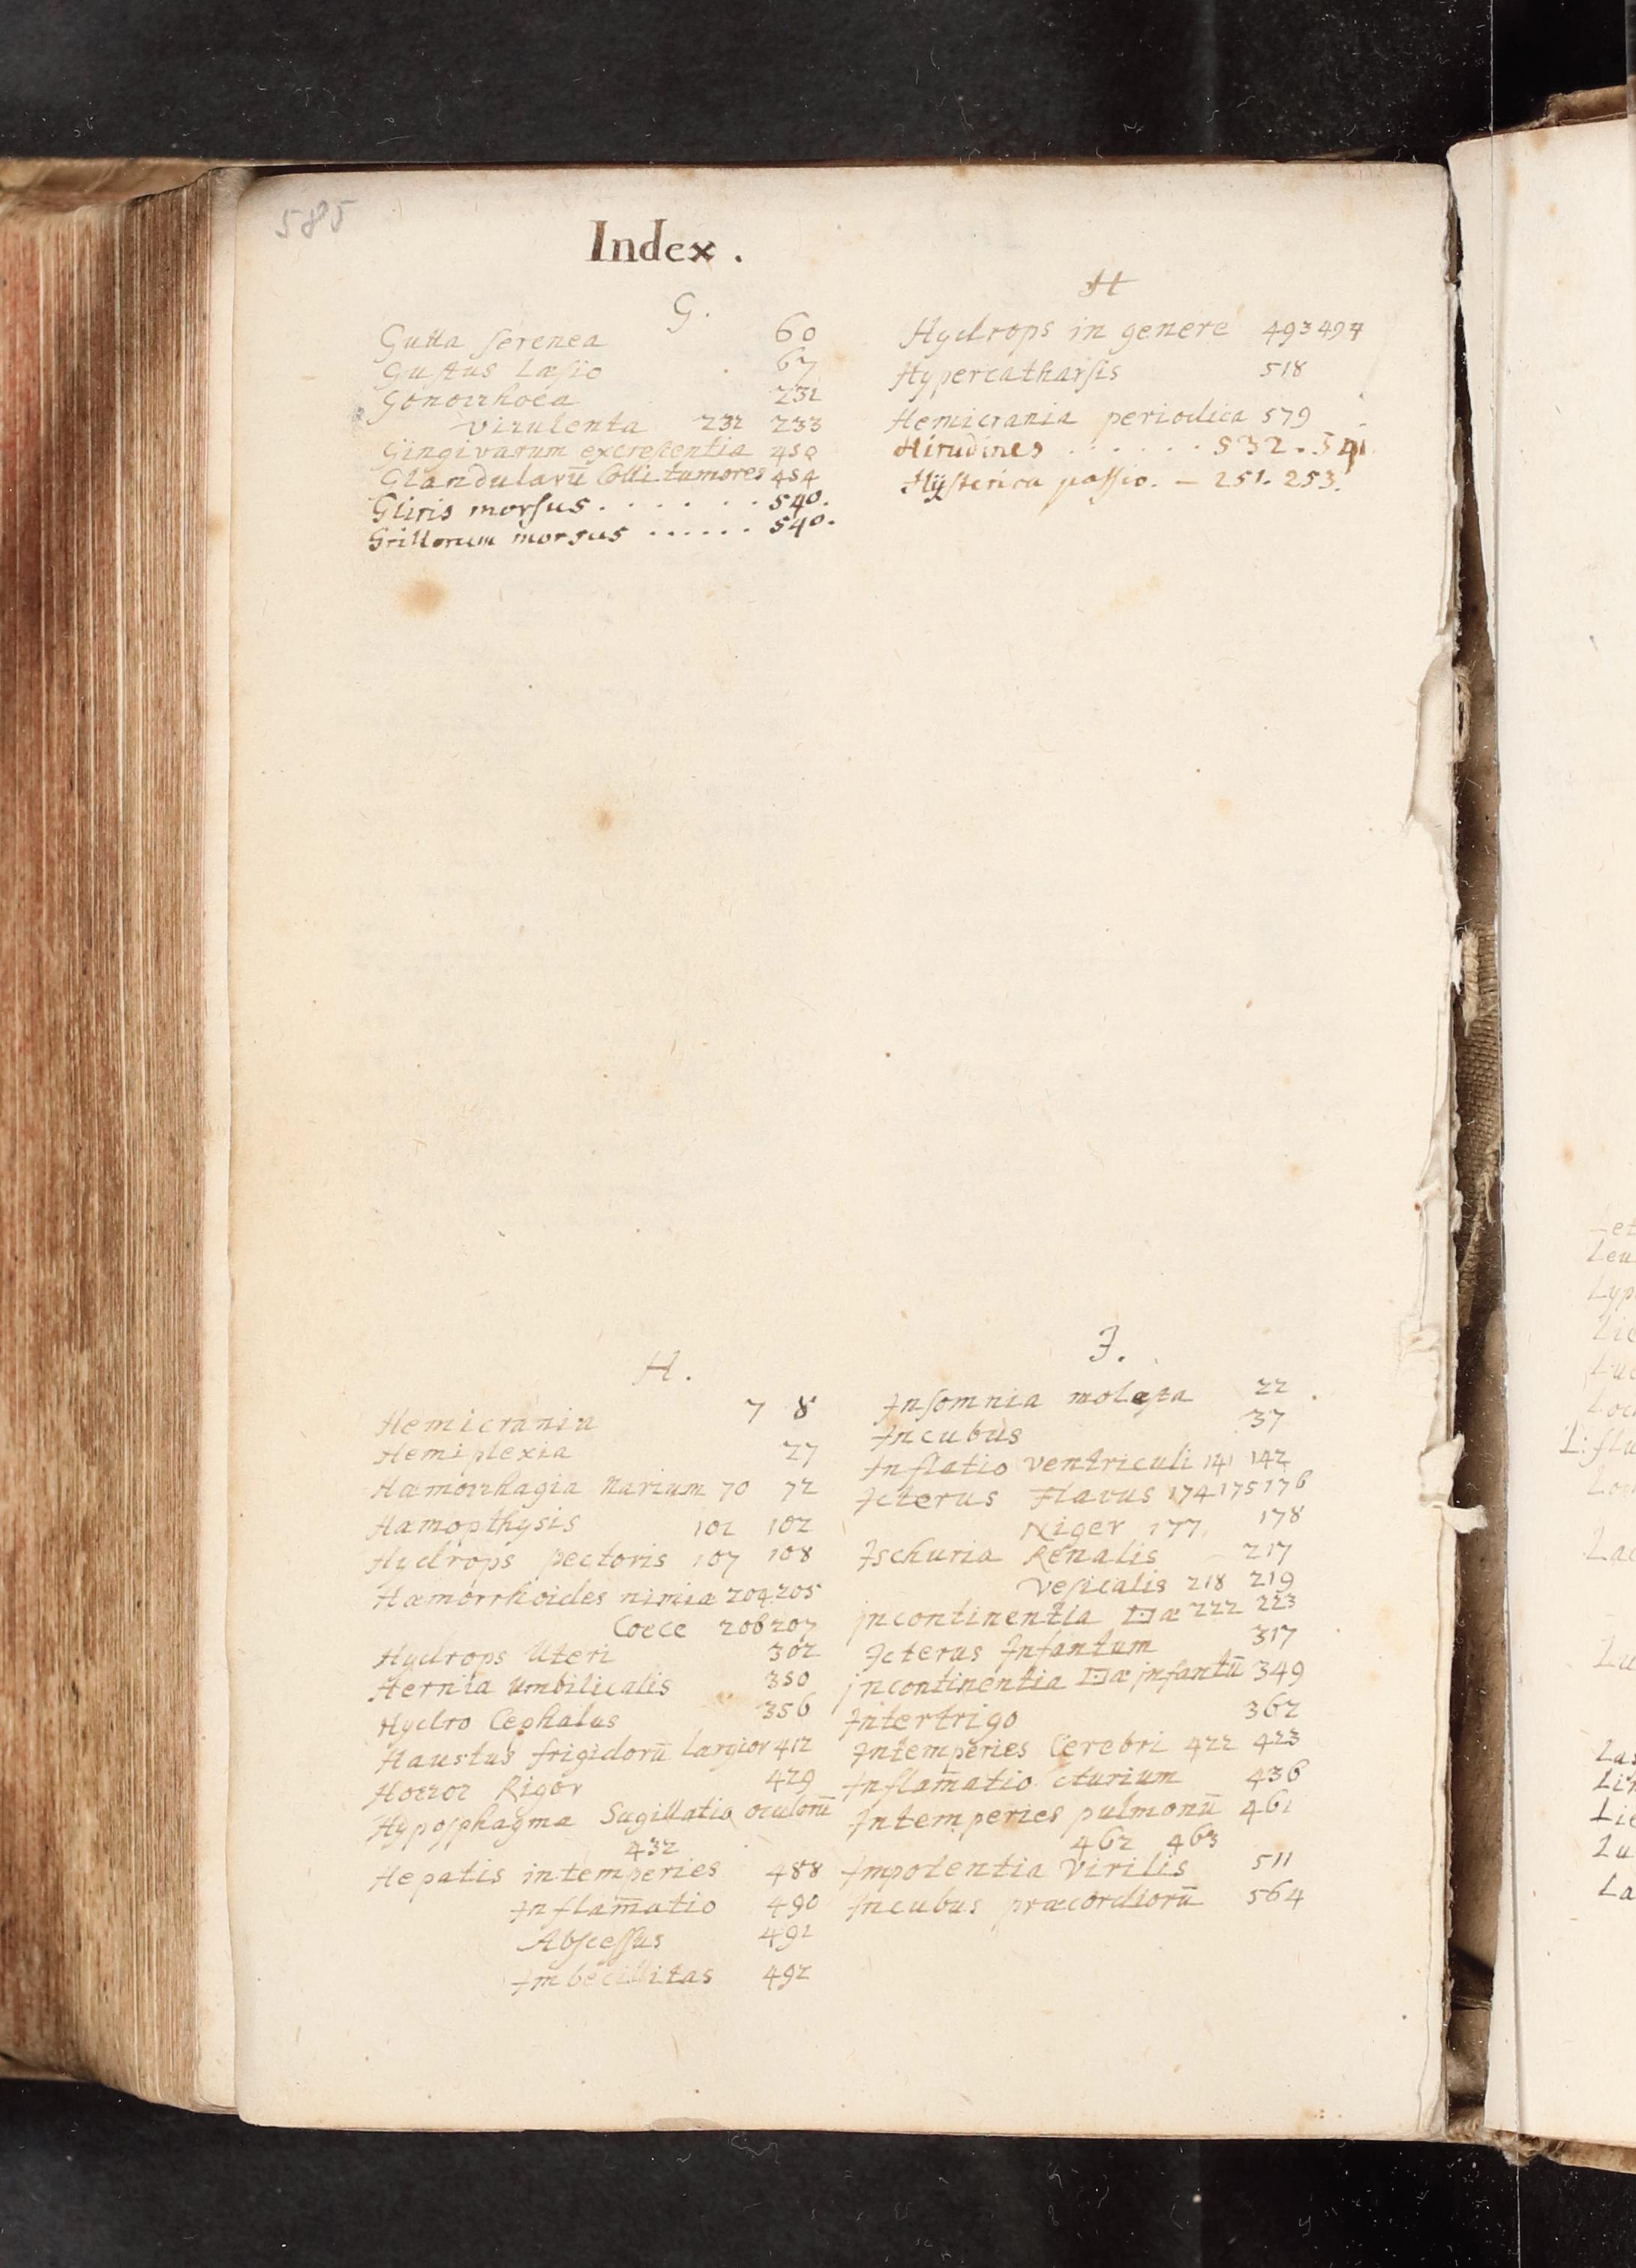 585
Index.
G.
Gutta serenea 60
Gustus Læsio 67
Gonorrhoea 231
Virulenta 232 233
Gingivarum excrescentia 450
Glandularū Colli tumores 454
Gliris morsus . . . . . . 540.
Grillorum morsus ...... 540.
H
Hydrops in genere 493 494
Hypercatharsis 518
Hemicrania periodica 579
Hirudines . . . . . . 532. 541
Hÿsterica passio. — 251. 253.
H.
Hemicrania 7 8
Hemiplexia 27
Hæmorrhagia Narium 70 72
Hæmopthysis 101 102
Hydrops pectoris 107 108
Hæmorrhoides nimiæ 204 205
Coece 206 207
Hydrops Uteri 302
Hernia Umbilicalis 350
Hydro Cephalus 356
Haustus frigidorū largior 412
Horror Rigor 429
Hyposphagma Sugillatio oculorū
432
Hepatis intemperies 488
Inflam̄atio 490
Abscessus 491
Imbecillitas 492
I.
Insomnia molesta 22
Incubus 37
Inflatio ventriculi 141 142
Icterus Flavus 174 175 176
Niger 177 178
Ischuria Renalis 217
Vesicalis 218 219
incontinentia æ 222 223
Icterus Infantum 317
incontinentia æ infantū 349
Intertrigo 362
Intemperies Cerebri 422 423
Inflam̄atio Aurium 436
Intemperies pulmonū 461
462 463
Impotentia Virilis 511
Incubus præcordiorū 564